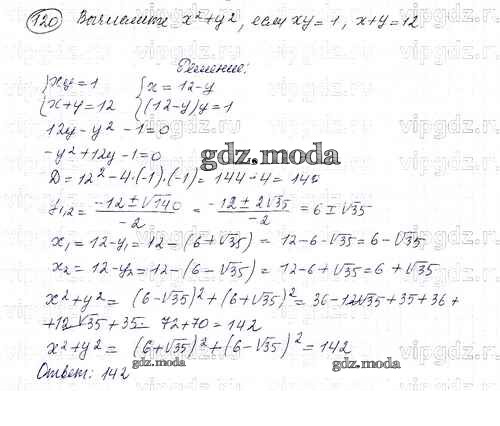 120 Вычислите x²+y², если xy=1, x+y=12
Решение:
{xy=1 {x=12-y
{x+y=12 {(12-y)y=1
12y-y²-1=0
-y²+12y-1=0
gdz.moda
D=12²-4·(-1)·(-1)=144-4=140
y₁,₂= (-12±√140)/(-2) = (-12±2√35)/(-2) =6±√35
x₁=12-y₁=12-(6+√35)=12-6-√35=6-√35
x₂=12-y₂=12-(6-√35)=12-6+√35=6+√35
x²+y²=(6-√35)²+(6+√35)²=36-12√35+35+36+
+12√35+35=72+70=142
x²+y²=(6+√35)²+(6-√35)²=142
gdz.moda
Ответ: 142